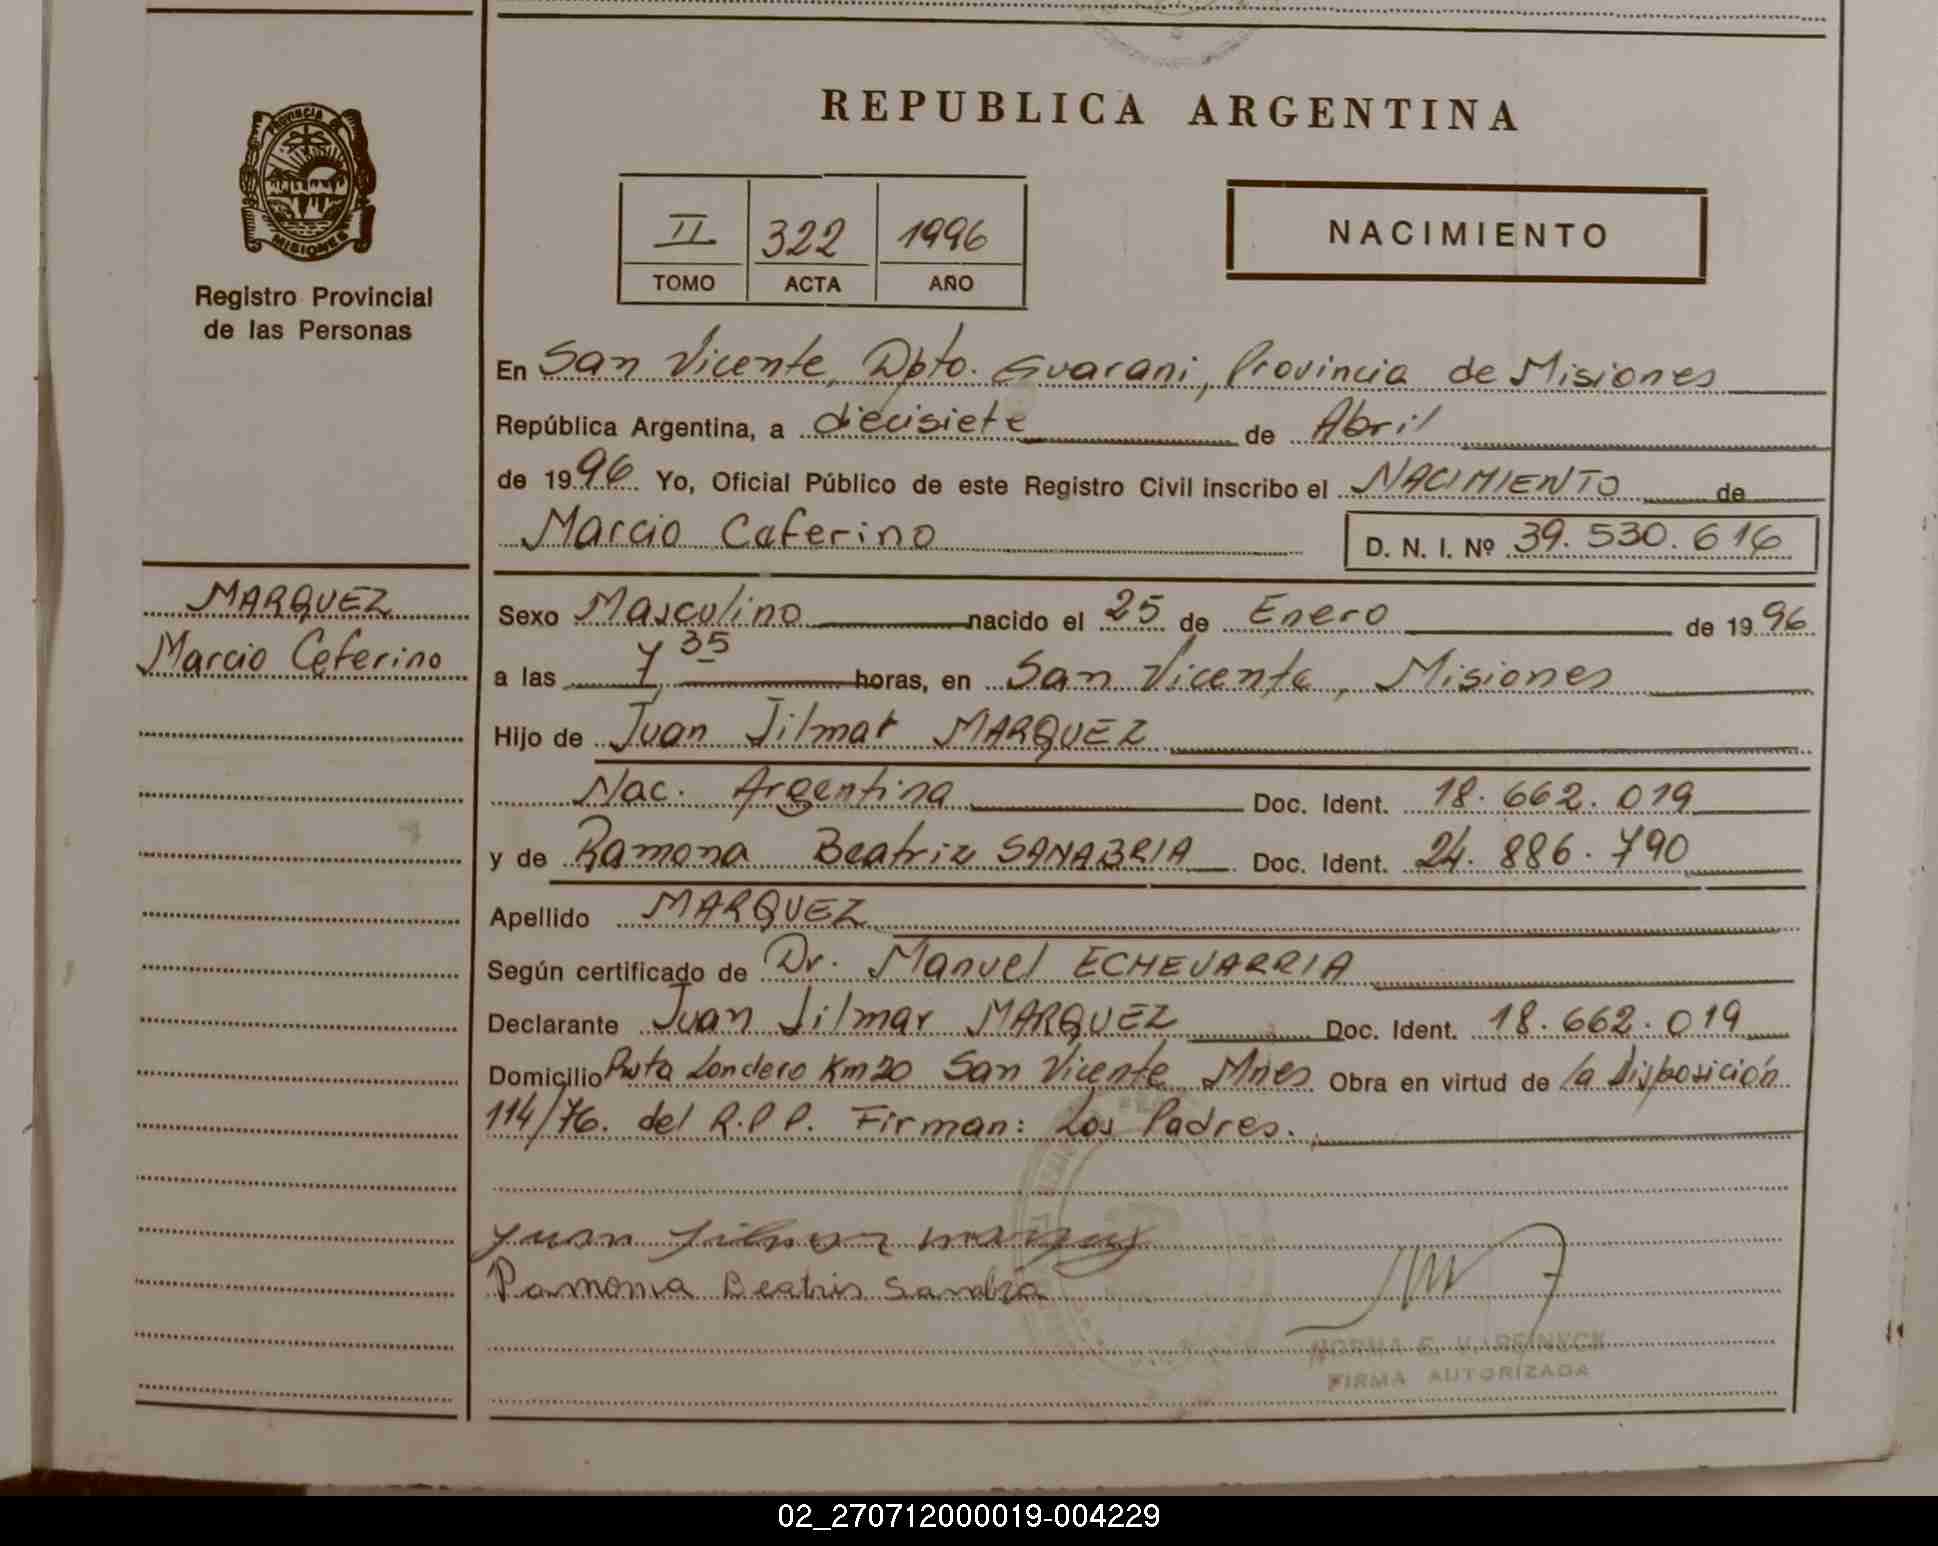 Provincia de
MISIONES
Registro Provincial
de las Personas
MARQUEZ
Marcio Ceferino
REPUBLICA ARGENTINA
II 322 1996
TOMO ACTA AÑO
NACIMIENTO
En San Vicente, Dpto. Guarani, Provincia de Misiones
República Argentina, a diecisiete de Abril
de 1996 Yo, Oficial Público de este Registro Civil inscribo el NACIMIENTO de
Marcio Ceferino D. N. I. Nº 39.530.616
Sexo Masculino nacido el 25 de Enero de 1996
a las 7 35 horas, en San Vicente, Misiones
Hijo de Juan Jilmar MARQUEZ
Nac. Argentina Doc. Ident. 18.662.019
y de Ramona Beatriz SANABRIA Doc. Ident. 24.886.790
Apellido MARQUEZ
Según certificado de Dr. Manuel ECHEVARRIA
Declarante Juan Jilmar MARQUEZ Doc. Ident. 18.662.019
Domicilio Ruta Londero Km 20 San Vicente Mnes Obra en virtud de la Disposición
114/76. del R.P.P. Firman: Los Padres.
Juan Jilmar
Ramona Beatris
NORMA E.
FIRMA AUTORIZADA
02_270712000019-004229